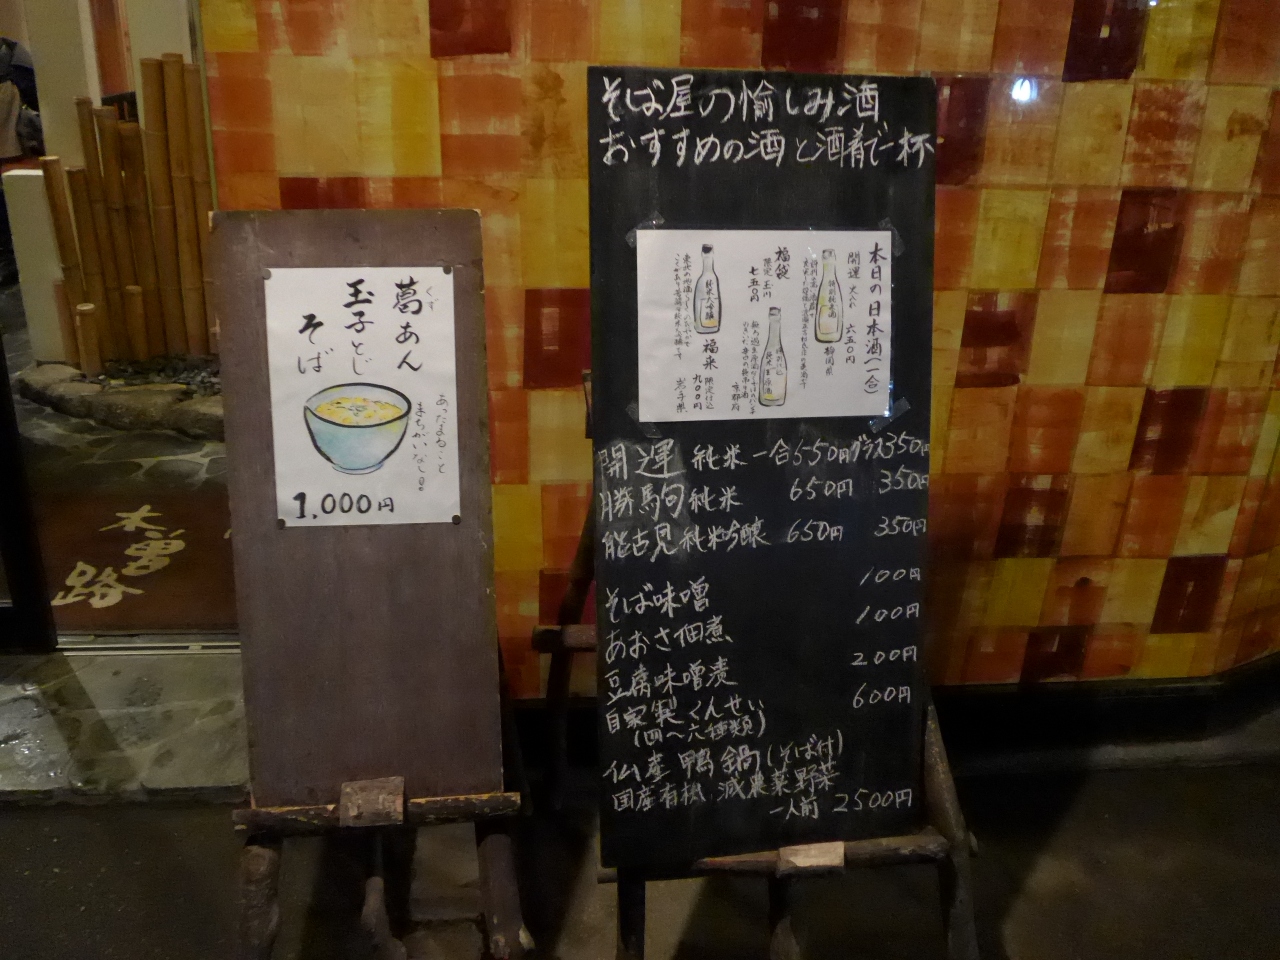 葛あん
くず
玉子とじ
そば
あったまること
まちがいなし。
1,000円
木曽
路
そば屋の愉しみ酒
おすすめの酒と酒肴で一杯
本日の日本酒(一合)
開運 火入れ 六五〇円
静岡県
福袋
限定 玉川
七五〇円
京都府
福来
限定仕込
九〇〇円
岩手県
開運 純米 一合550円グラス350円
勝駒 純米 650円 350円
能古見 純米吟醸 650円 350円
そば味噌 100円
あおさ佃煮 100円
豆腐味噌漬 200円
自家製くんせい 600円
(四〜六種類)
仏産 鴨鍋(そば付)
国産有機、減農薬野菜
一人前 2500円